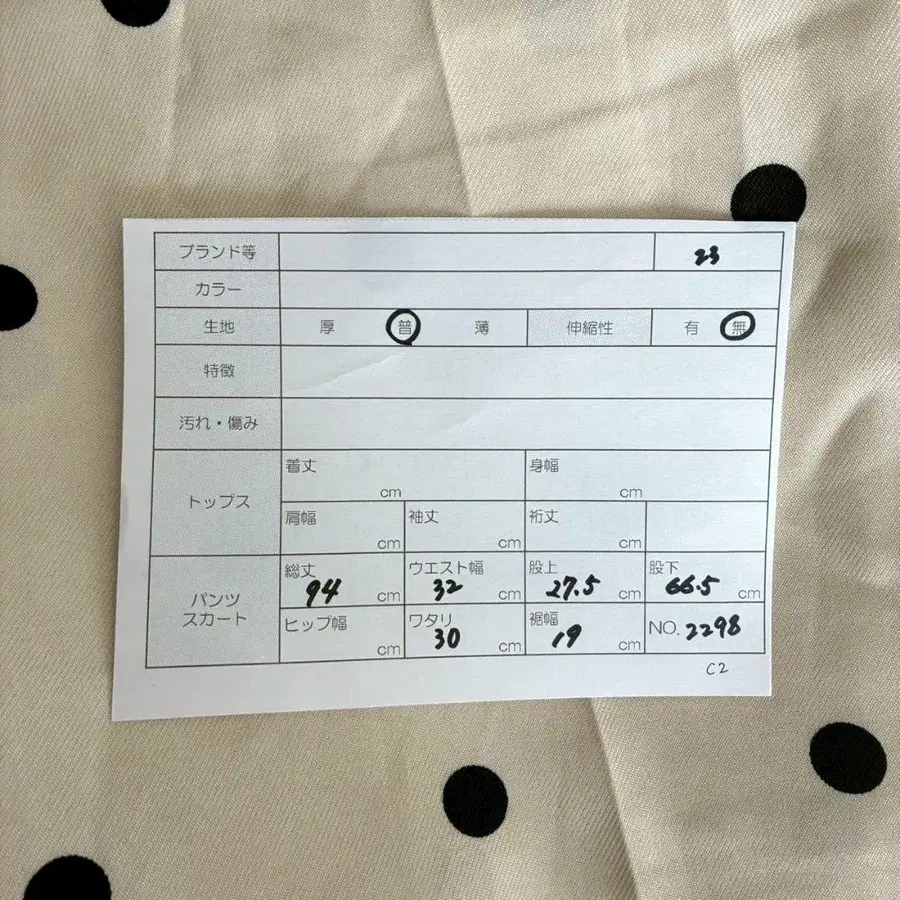 ブランド等 23
カラー
生地 厚 普 薄 伸縮性 有 無
特徴
汚れ・傷み
トップス
着丈 cm 身幅 cm
肩幅 cm 袖丈 cm 裄丈 cm
パンツ
スカート
総丈 94 cm ウエスト幅 32 cm 股上 27.5 cm 股下 66.5 cm
ヒップ幅 cm ワタリ 30 cm 裾幅 19 cm NO. 2298
C2